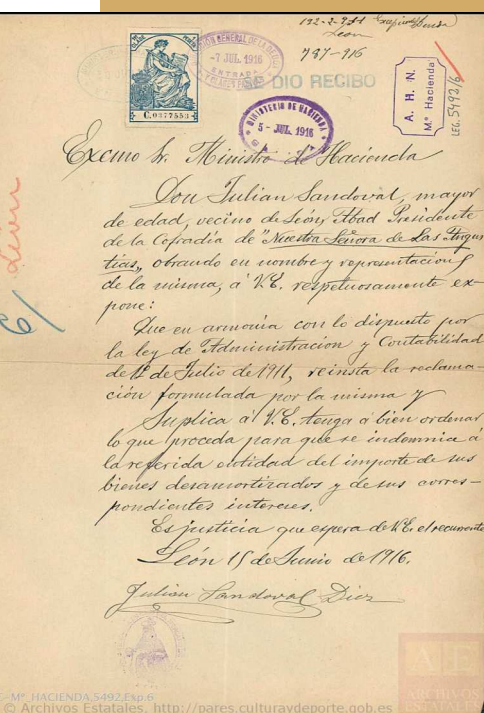 León
737-916
-7 JUL. 1916
ENTRADA
SE DIO RECIBO
C.0377553
MINISTERIO DE HACIENDA
5 - JUL. 1916
A. H. N.
Mº Hacienda
LEG. 5492/6
Excmo Sr. Ministro de Hacienda
Don Julian Sandoval, mayor
de edad, vecino de León, Abad Presidente
de la Cofradia de "Nuestra Señora de Las Angus
tias„ obrando en nombre y representacion
de la misma, á V.E. respetuosamente ex-
pone:
León
6/
Que en armonia con lo dispuesto por
la ley de Administracion y Contabilidad
de 1º de Julio de 1911, reinsta la reclama-
ción formulada por la misma y
Suplica á V.E. tenga á bien ordenar
lo que proceda para que se indemnice á
la referida entidad del importe de sus
bienes desamortizados y de sus corres-
pondientes intereses.
Es justicia que espera de V.E. el recurrente
León 15 de Junio de 1916.
Julian Sandoval Diez
AE
ARCHIVOS
ESTATALES
Mº_HACIENDA,5492,Exp.6
© Archivos Estatales, http://pares.culturaydeporte.gob.es